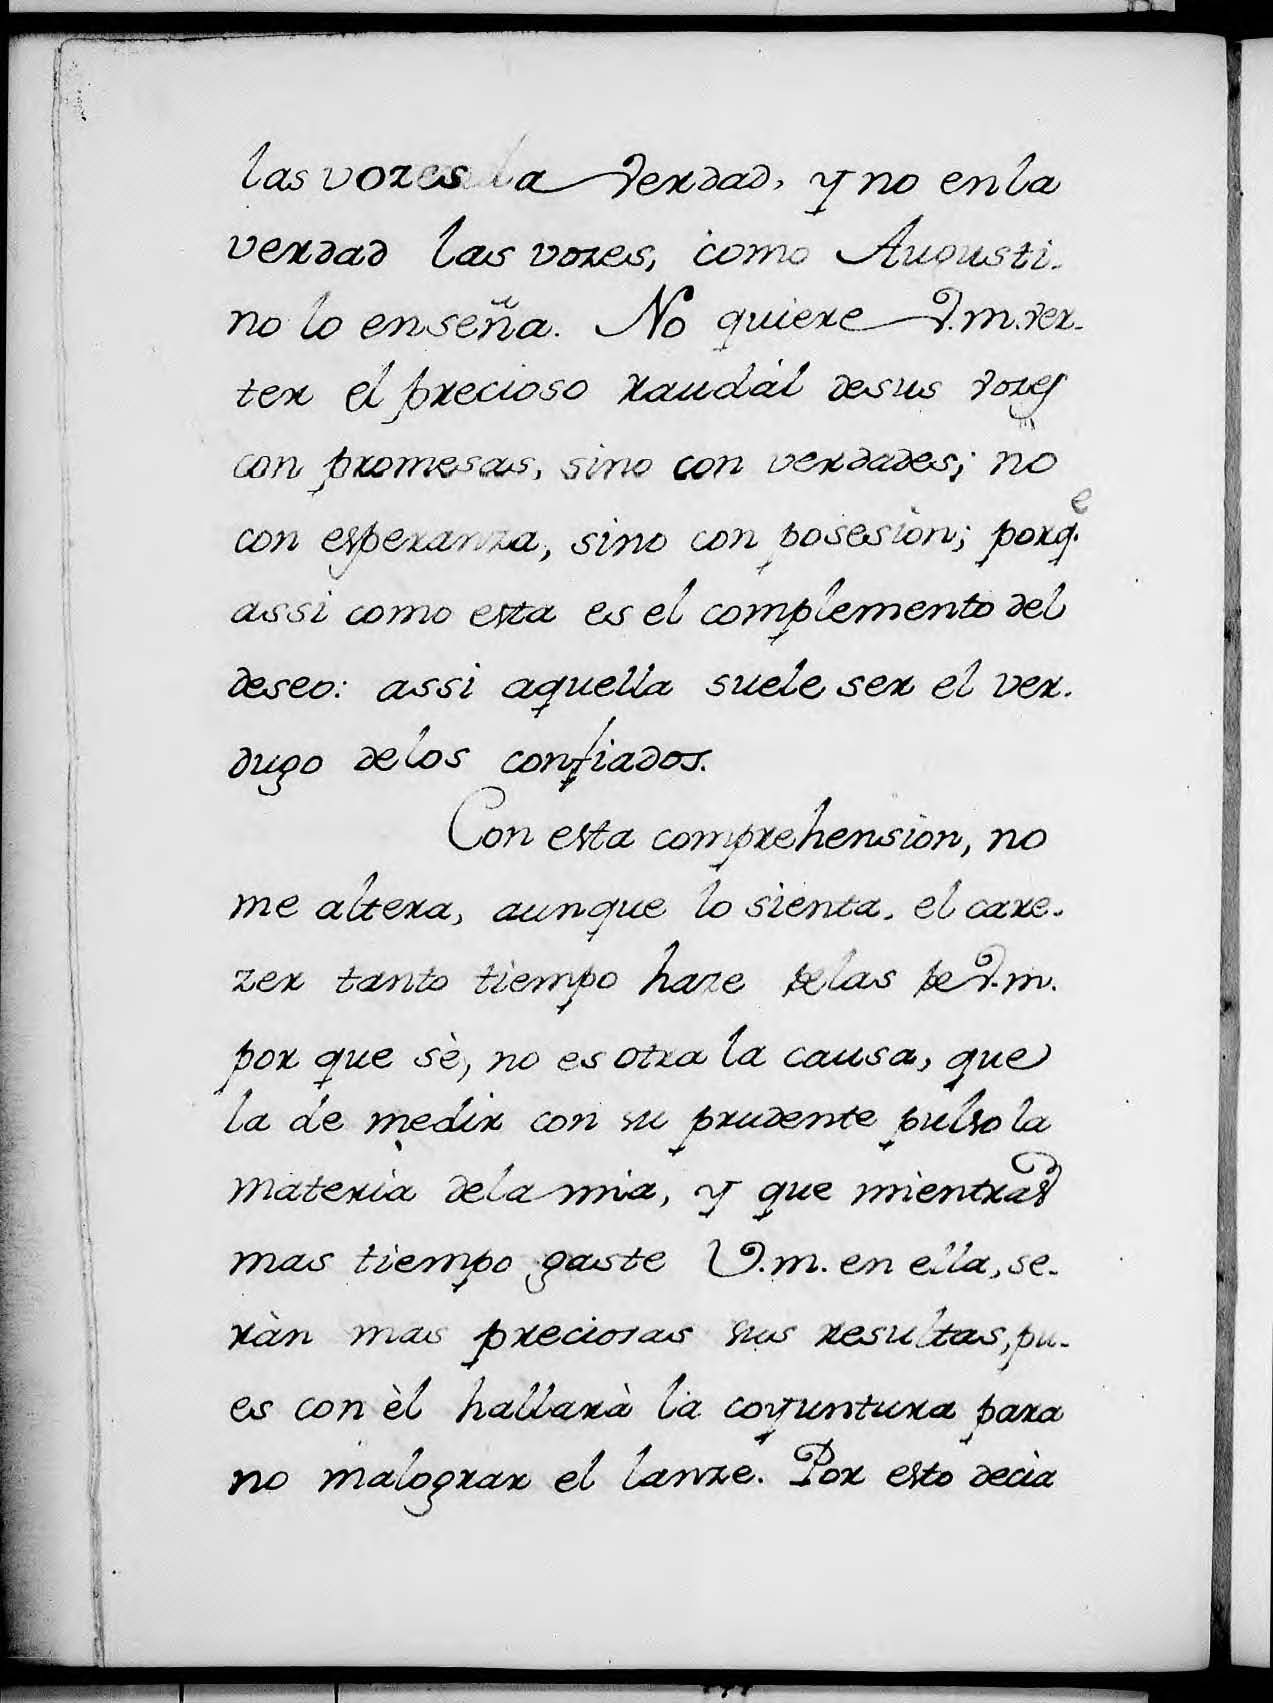 las vozes la verdad, y no en la
verdad las vozes, como Augusti-
no lo enseña. No quiere V.m. ver-
ter el precioso raudàl de sus vozes
con promesas, sino con verdades; no
con esperanza, sino con posesion; porq.e
assi como esta es el complemento del
deseo: assi aquella suele ser el ver-
dugo de los confiados.
Con esta comprehension, no
me altera, aunque lo sienta, el care-
zer tanto tiempo haze de las de V.m.
por que sè, no es otra la causa, que
la de medir con su prudente pulso la
materia de la mia, y que mientras
mas tiempo gaste V.m. en ella, se-
ràn mas preciosas sus resultas, pu-
es con èl hallarà la coyuntura para
no malograr el lanze. Por esto decia